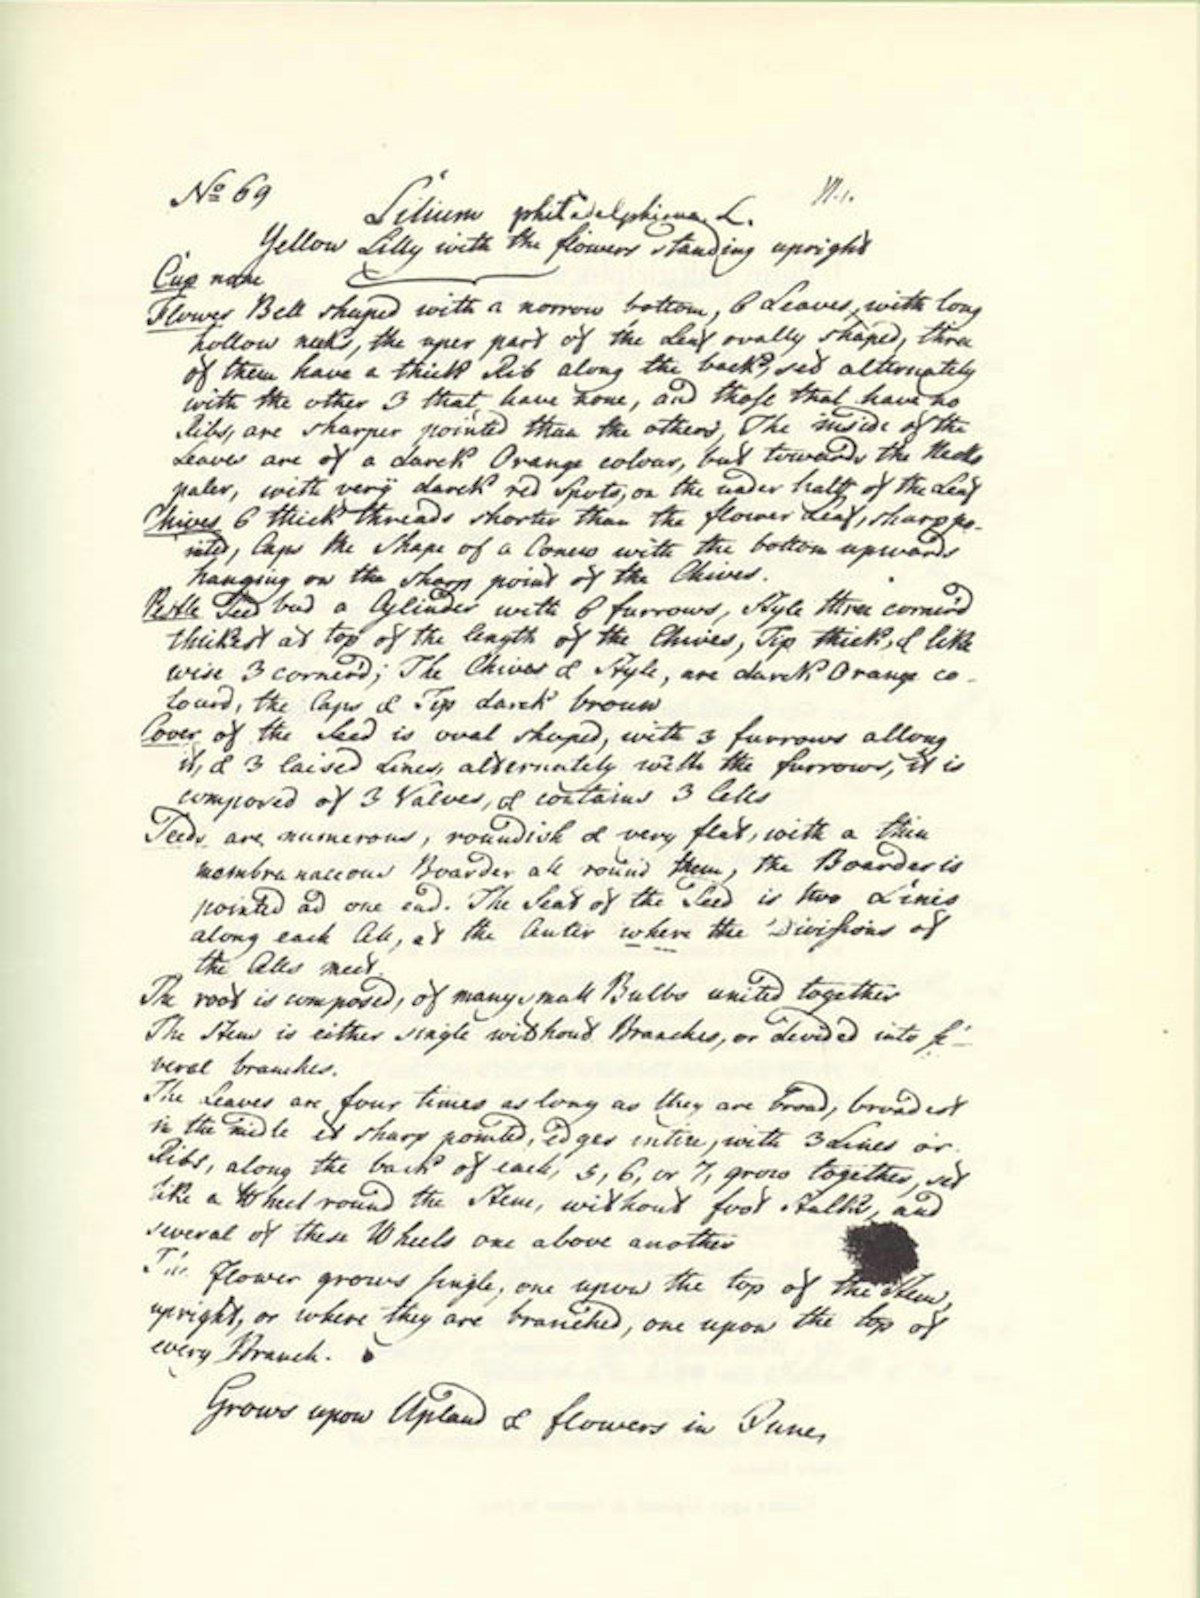 No 69
Lilium philadelphicum L.
Yellow Lilly with the flowers standing upright
Cup none
Flower Bell shaped with a norrow bottom, 6 Leaves, with long
hollow necks, the uper part of the Leaf ovally shaped, three
of them have a thick Rib along the back, sed alternately
with the other 3 that have none, and those that have no
Ribs, are sharper pointed than the others, The inside of the
Leaves are of a darck Orange colour, but towards the Necks
paler, with very darck red Spots, on the under half of the Leaf
Chives 6 thick threads shorter than the flower Leaf, sharp po-
inted, Caps the Shape of a Conus with the bottom upwards
hanging on the sharp point of the Chives.
Pestle Seed bud a Cylinder with 6 furrows, Style three cornerd
thickest at top of the length of the Chives, Tip thick, & like
wise 3 cornerd; The Chives & Style, are darck Orange co-
lourd, the Caps & Tip darck broun
Cover of the Seed is oval shaped, with 3 furrows allong
it, & 3 raised Lines, alternately with the furrows, it is
composed of 3 Valves, & contains 3 Cells
Seeds are numerous, roundish & very flat, with a thin
membranaceous Boarder all round them, the Boarder is
pointed ad one end. The Seat of the Seed is two Lines
along each Cell, at the Center where the Divisions of
the Cells meet.
The root is composed, of many small Bulbs united together
The Stem is either single without Branches, or devided into se-
veral branches.
The Leaves are four times as long as they are broad, broadest
in the midle & sharp pointed, edges intire, with 3 Lines or
Ribs, along the back of each, 5, 6, or 7, grow together, set
like a Wheel round the Stem, without foot Stalks, and
several of these Wheels one above another
The Flower grows single, one upon the top of the Stem,
upright, or where they are branched, one upon the top of
every Branch.
Grows upon Upland & flowers in June,